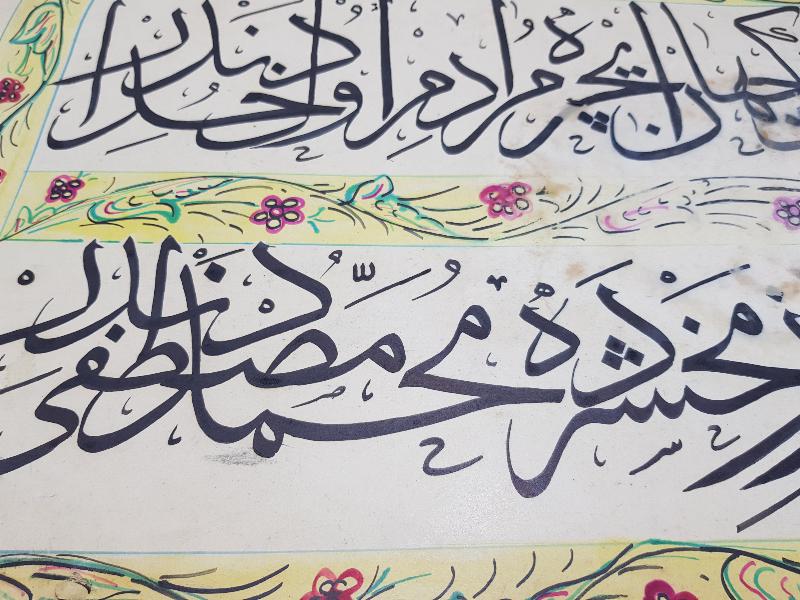 جهان ایچره مرادم اول خدادندر
محشرده محمد مصطفی دندر